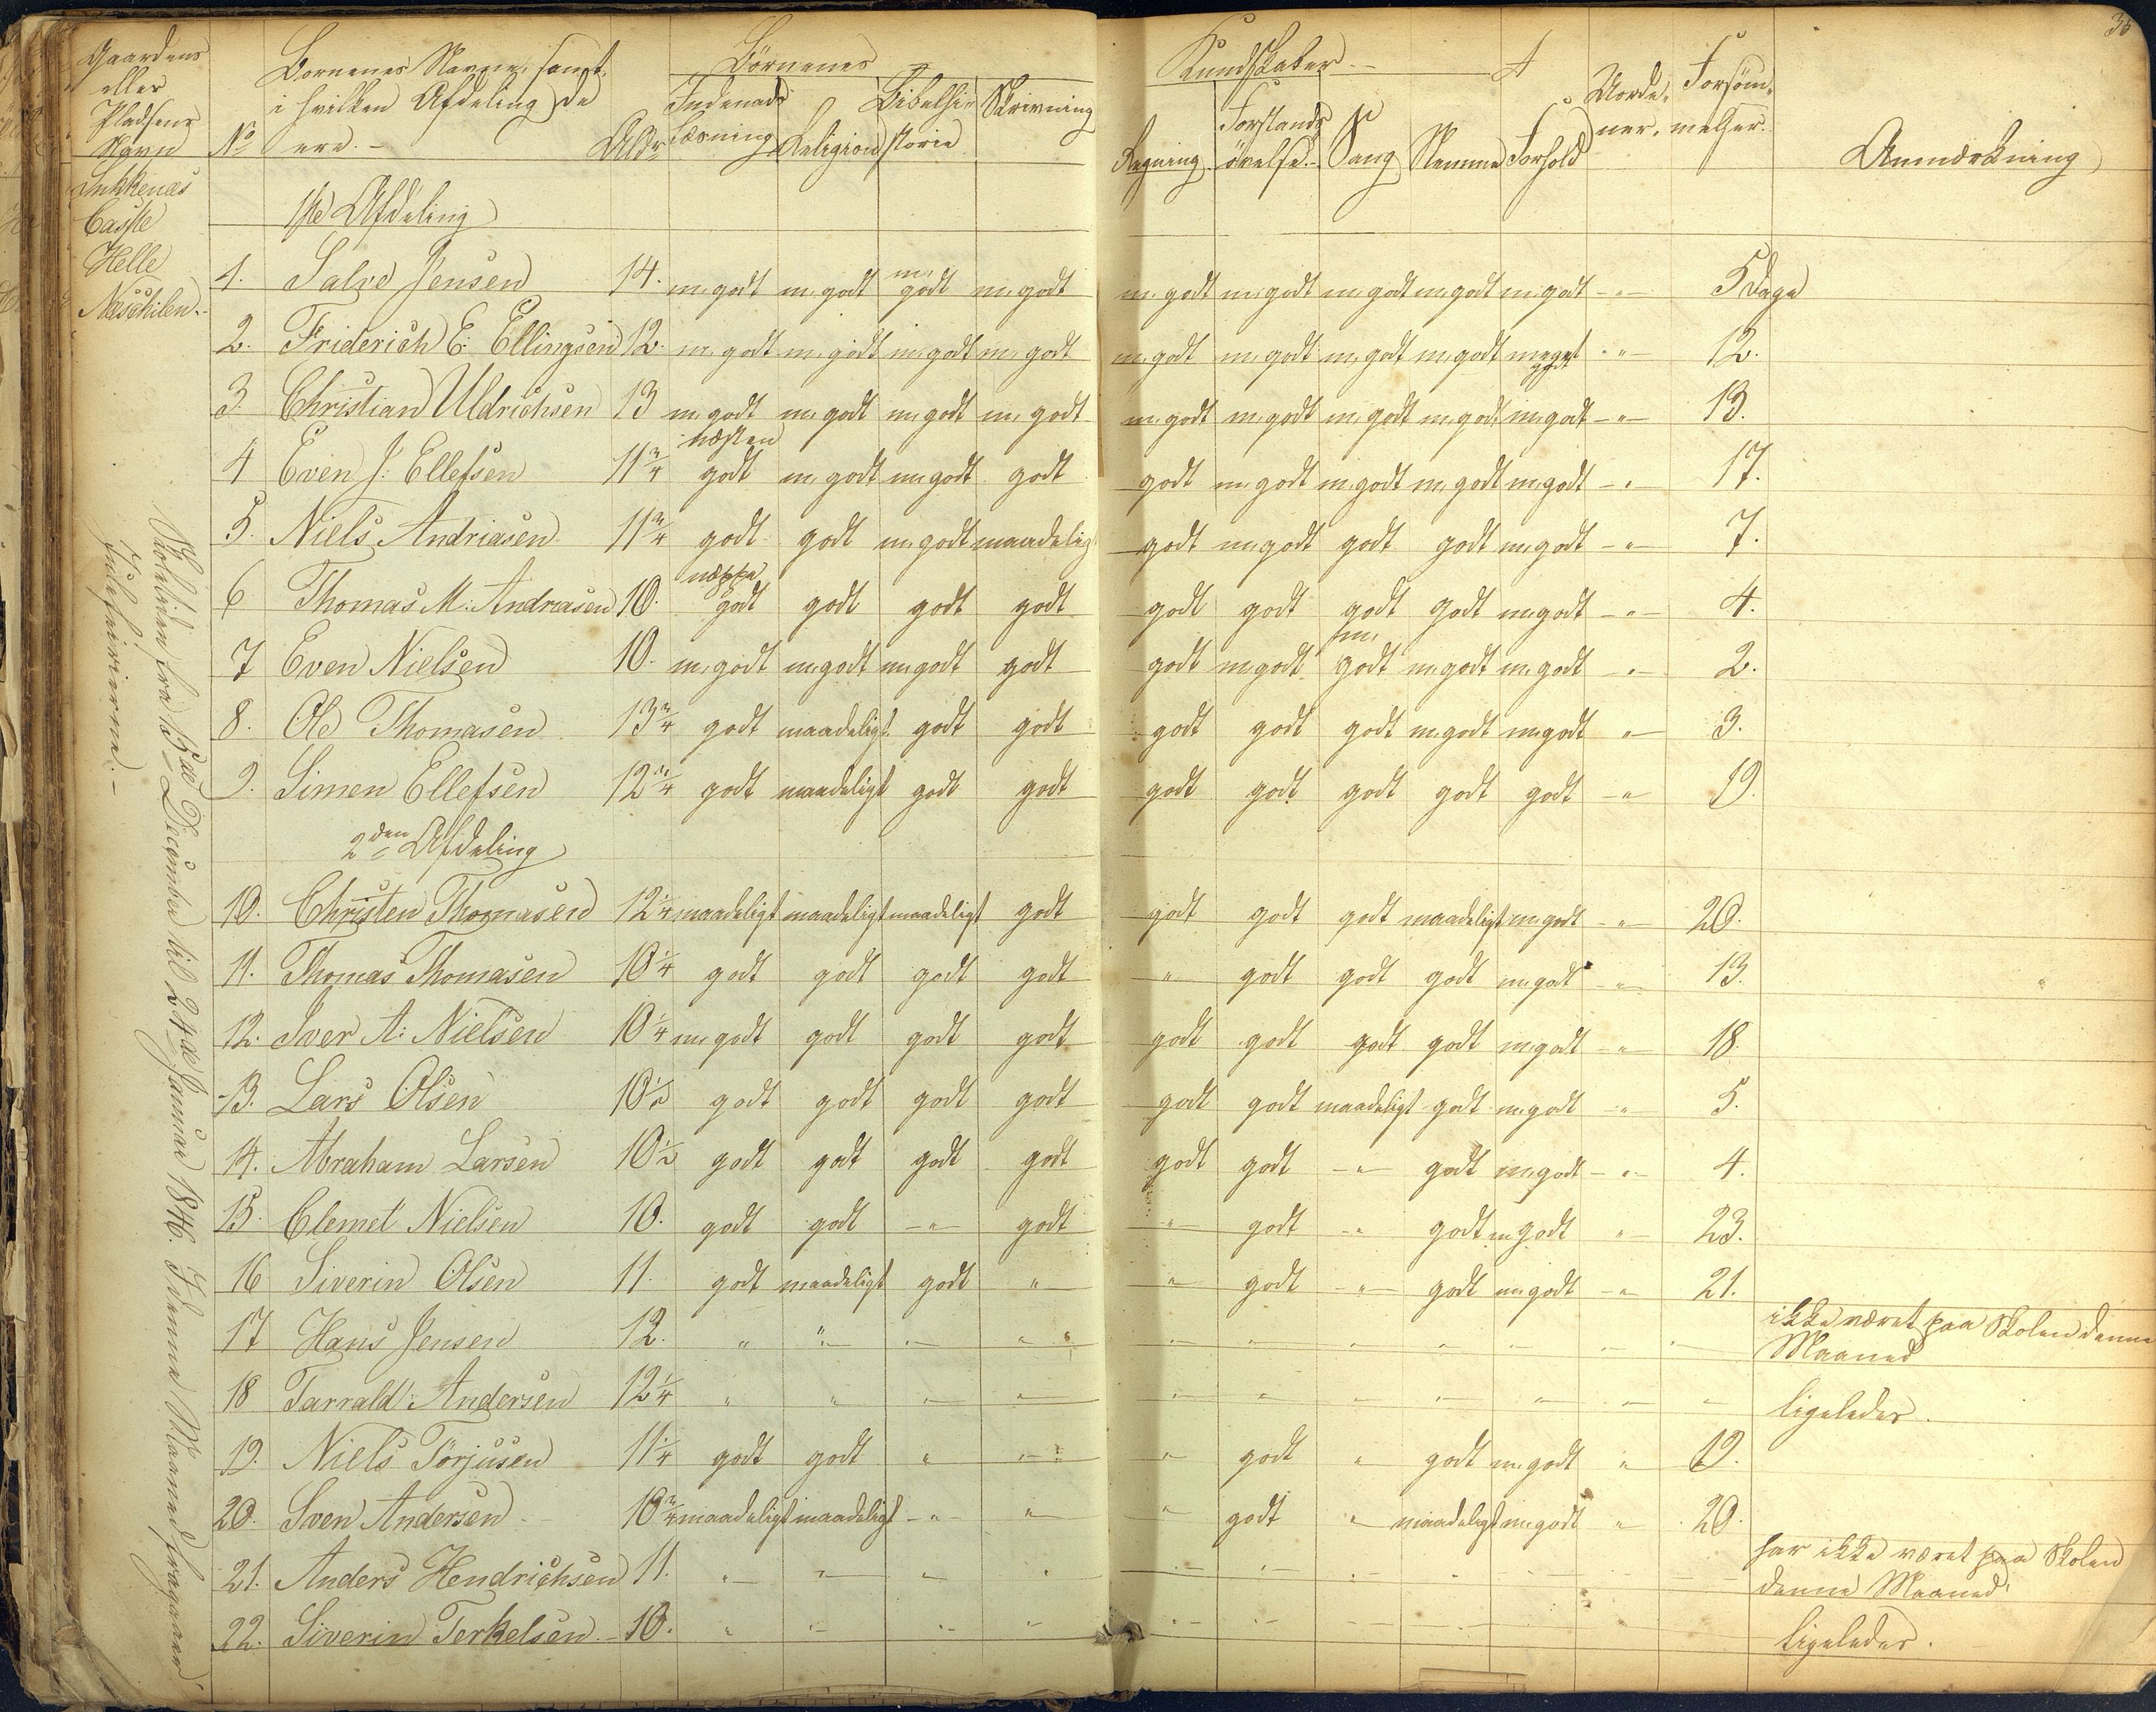 35
Gaardens
eller
Pladsens
Navn
No
Börnenes Navne, samt
i hvilken Afdeling de
ere. -
Aldr
Börnenes
Indenads
Læsning
Religion
Bibelhi-
storie
Skrivning
Kundskaber
Regning
Forstands
övelse
Sang
Nemme
Forhold
Uorde-
ner.
Forsöm-
melser.
Anmærkning
Casse
Helle
Næskilen
1ste Afdeling
1. Salve Jensen 14. m.godt m.godt m. godt m.godt m.godt m.godt m.godt m.godt m.godt - " - 5 Dage
2. Friderich E. Ellingsen 12. m.godt m.godt m.godt m.godt m.godt m.godt m.godt m.godt meget godt - " - 12.
3. Christian Uldrichsen 13 m.godt m.godt m.godt m.godt m.godt m.godt m.godt m.godt m.godt - " - 13.
4 Even J. Ellefsen 11 3/4 næsten godt m.godt m.godt godt godt m.godt m.godt m.godt m.godt - " - 17.
5. Niels Andriasen 11 3/4 godt godt m.godt maadeligt godt m.godt godt godt m.godt - " - 7.
6 Thomas M. Andriasen 10. neppe godt godt godt godt godt godt godt godt m.godt - " - 4.
7 Even Nielsen 10. m.godt m.godt m.godt godt godt m.godt m. godt m.godt m.godt - " - 2.
8. Ole Thomasen 13 3/4 godt maadeligt godt godt godt godt godt m.godt m.godt " - 3.
9. Simen Ellefsen 12 3/4 godt maadeligt godt godt godt godt godt godt godt - " 19.
2den Afdeling
10. Christen Thomasen 12 1/4 maadeligt maadeligt maadeligt godt godt godt godt maadeligt m.godt - " - 20.
11. Thomas Thomasen 10 1/4 godt godt godt godt " godt godt godt m.godt - " - 13.
12. Iver A. Nielsen 10 1/4 m.godt godt godt godt godt godt godt godt m.godt - " - 18.
13. Lars Olsen 10 1/2 godt godt godt godt godt godt maadeligt godt m.godt - " 5.
14. Abraham Larsen 10 1/2 godt godt godt godt godt godt - " - godt m.godt - " - 4.
15. Clemet Nielsen 10. godt godt - " - godt " godt - " godt m.godt " - 23.
16 Siverin Olsen 11. godt maadeligt godt " " godt - " - godt m.godt - " 21.
17 Hans Jensen 12. " " " " " " " " " " " ikke været paa Skolen denne
Maaned
18 Tarrald Andersen 12 1/4 " " " " " " " " " " " ligeledes.
19. Niels Törjusen 11 1/4 godt godt " " " godt " godt m.godt " 19.
20. Sven Andersen 10 3/4 maadeligt maadeligt - " - " " godt " maadeligt m.godt " 20.
21. Anders Hendrichsen 11. " " " " " " " har ikke været paa Skolen
denne Maaned
22. Siverin Terkelsen 10. " " " " " " " ligeledes.
Skoletiden fra 15de December til 24de Januar 1846. I denne Maaned fragaaer
Juleferierne. -